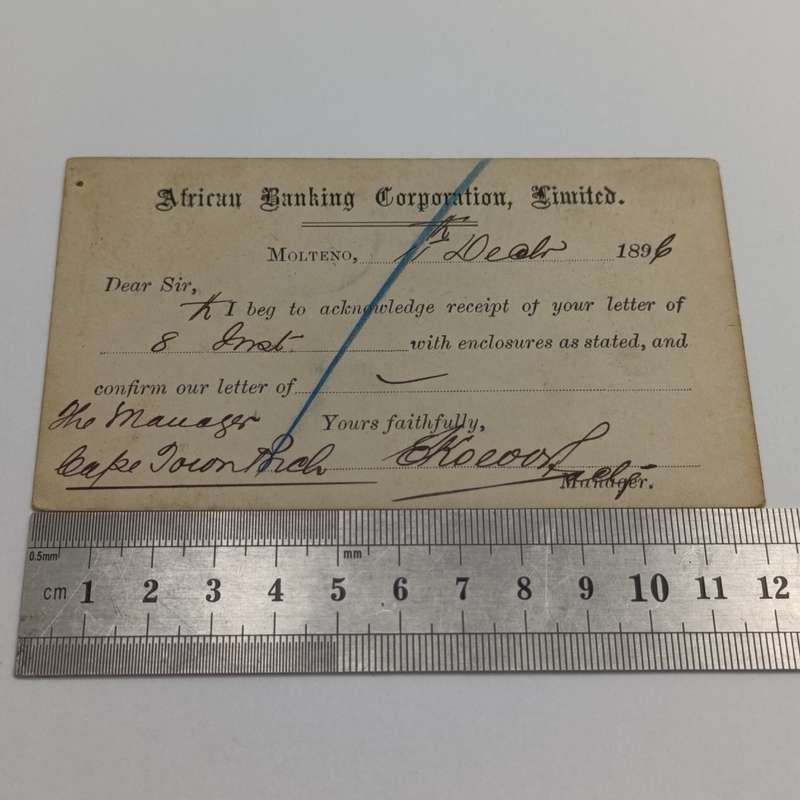 African Banking Corporation, Limited.
MOLTENO, 11th Decbr 1896
Dear Sir,
I beg to acknowledge receipt of your letter of
8th Inst. with enclosures as stated, and
confirm our letter of
The Manager
Yours faithfully,
Cape Town Brch
Manager.
0.5mm mm
cm 1 2 3 4 5 6 7 8 9 10 11 12